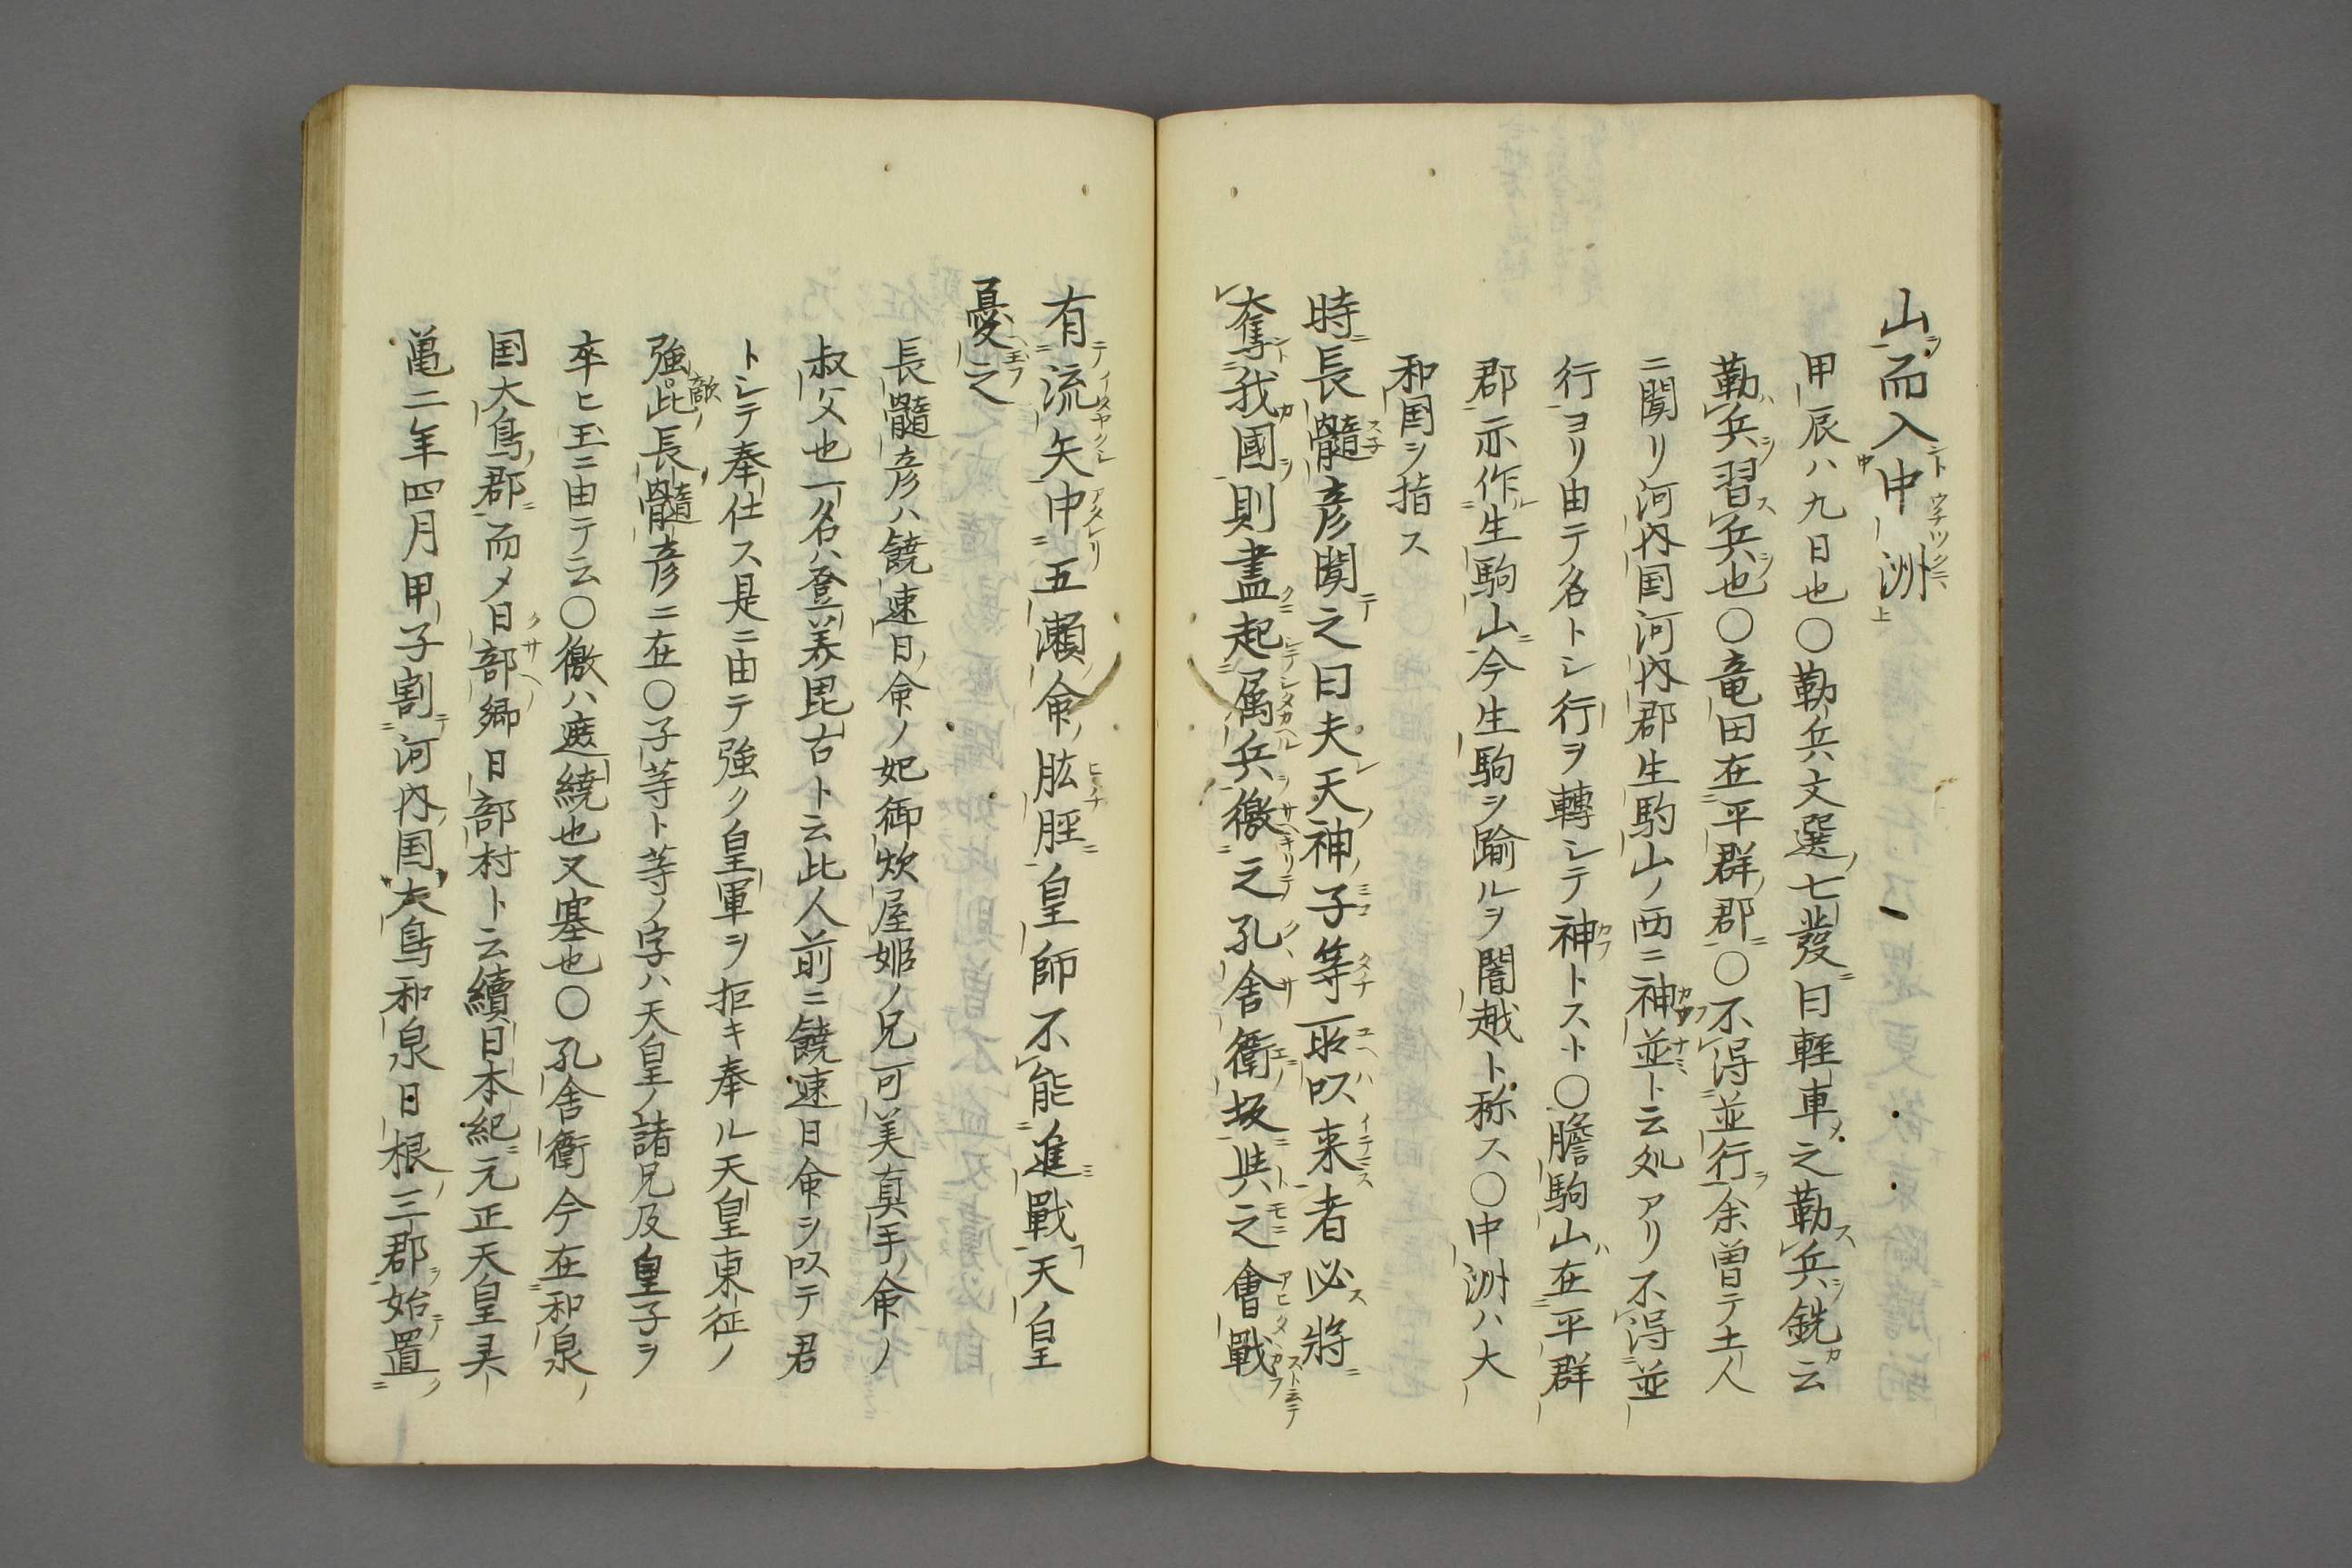 山而入中洲
甲辰ハ九日也〇勒兵文選七發曰輕車之勒兵銑云
勒兵習兵也〇竜田在平群郡〇不得並行余曽テ土人
ニ聞リ河内国河内郡生駒山ノ西ニ神並ト云処アリ不得並
行ヨリ由テ名トシ行ヲ轉シテ神トスト〇膽駒山在平群
郡亦作生駒山今生駒ヲ踰ルヲ闇越ト称ス〇中洲ハ大
和国ヲ指ス
時長髓彦聞之曰夫天神子等所以来者必將
奪我國則盡起属兵徼之孔舎衛坂與之會戰
有流矢中五瀬命肱脛皇師不能進戰天皇
憂之
長髓彦ハ饒速日命ノ妃御炊屋姫ノ兄可美真手命ノ
叔父也一名ハ登美毘古ト云此人前ニ饒速日命ヲ以テ君
トシテ奉仕ス是ニ由テ強ク皇軍ヲ拒キ奉ル天皇東征ノ
強敵此長髓彦ニ在〇子等ト等ノ字ハ天皇ノ諸兄及皇子ヲ
卒ヒ玉ニ由テ云〇徼ハ遮繞也又塞也〇孔舎衛今在和泉
国大鳥郡而メ日部郷日部村ト云續日本紀元正天皇霊
亀二年四月甲子割河内国大鳥和泉日根三郡始置